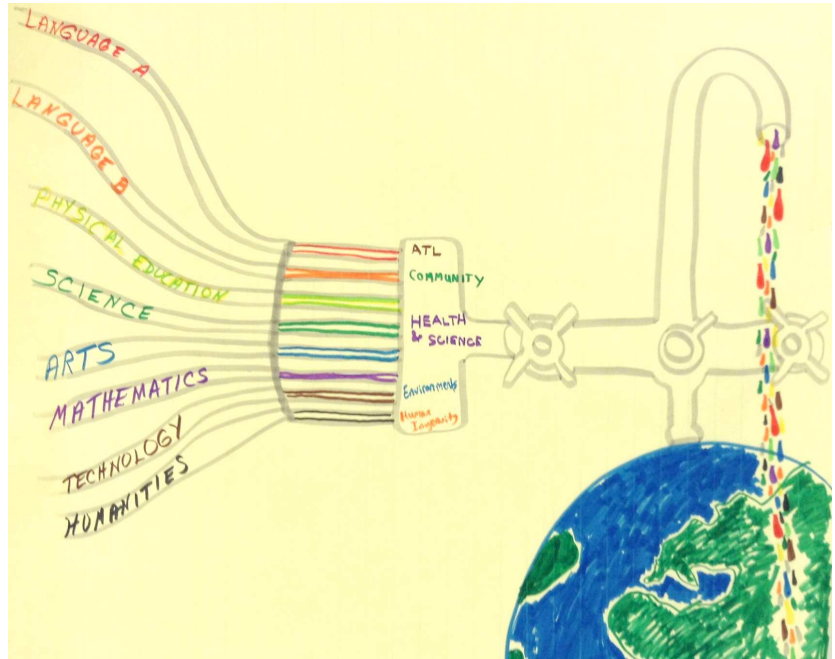 LANGUAGE A
LANGUAGE B
PHYSICAL EDUCATION
SCIENCE
ARTS
MATHEMATICS
TECHNOLOGY
HUMANITIES
ATL
COMMUNITY
HEALTH
& SCIENCE
Environment
Human
Ingenuity